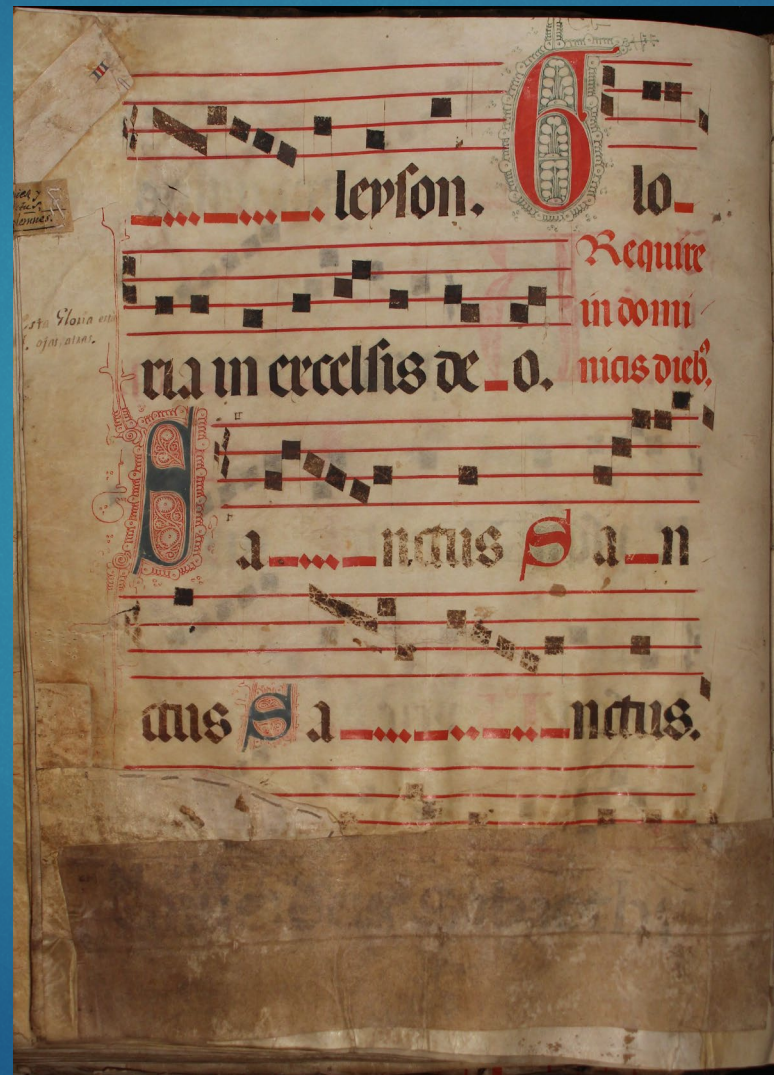 III
leyson. Glo
Require
in domi
nicis dieb9.
ria in excelsis deo.
Sanctus San
ctus Sanctus.